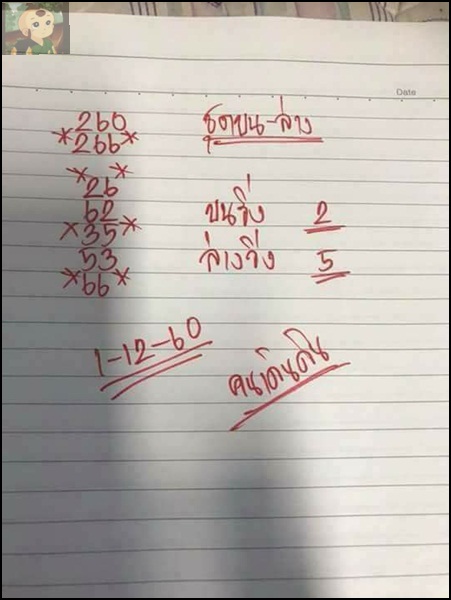 Date
260 ชุดบน-ล่าง
*266*
* *
26
62 บนวิ่ง 2
*35*
53 ล่างวิ่ง 5
*66*
1-12-60
คนเดินดิน